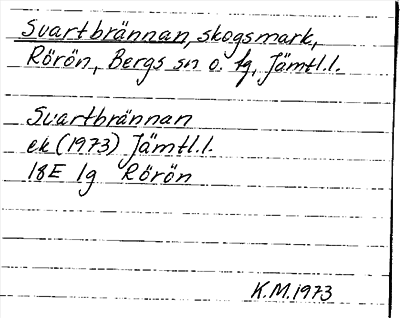 Svartbrännan, skogsmark,
Rörön, Bergs sn o. tg, Jämtl.l.
Svartbrännan
ek (1973) Jämtl.l.
18E 1g Rörön
K.M. 1973